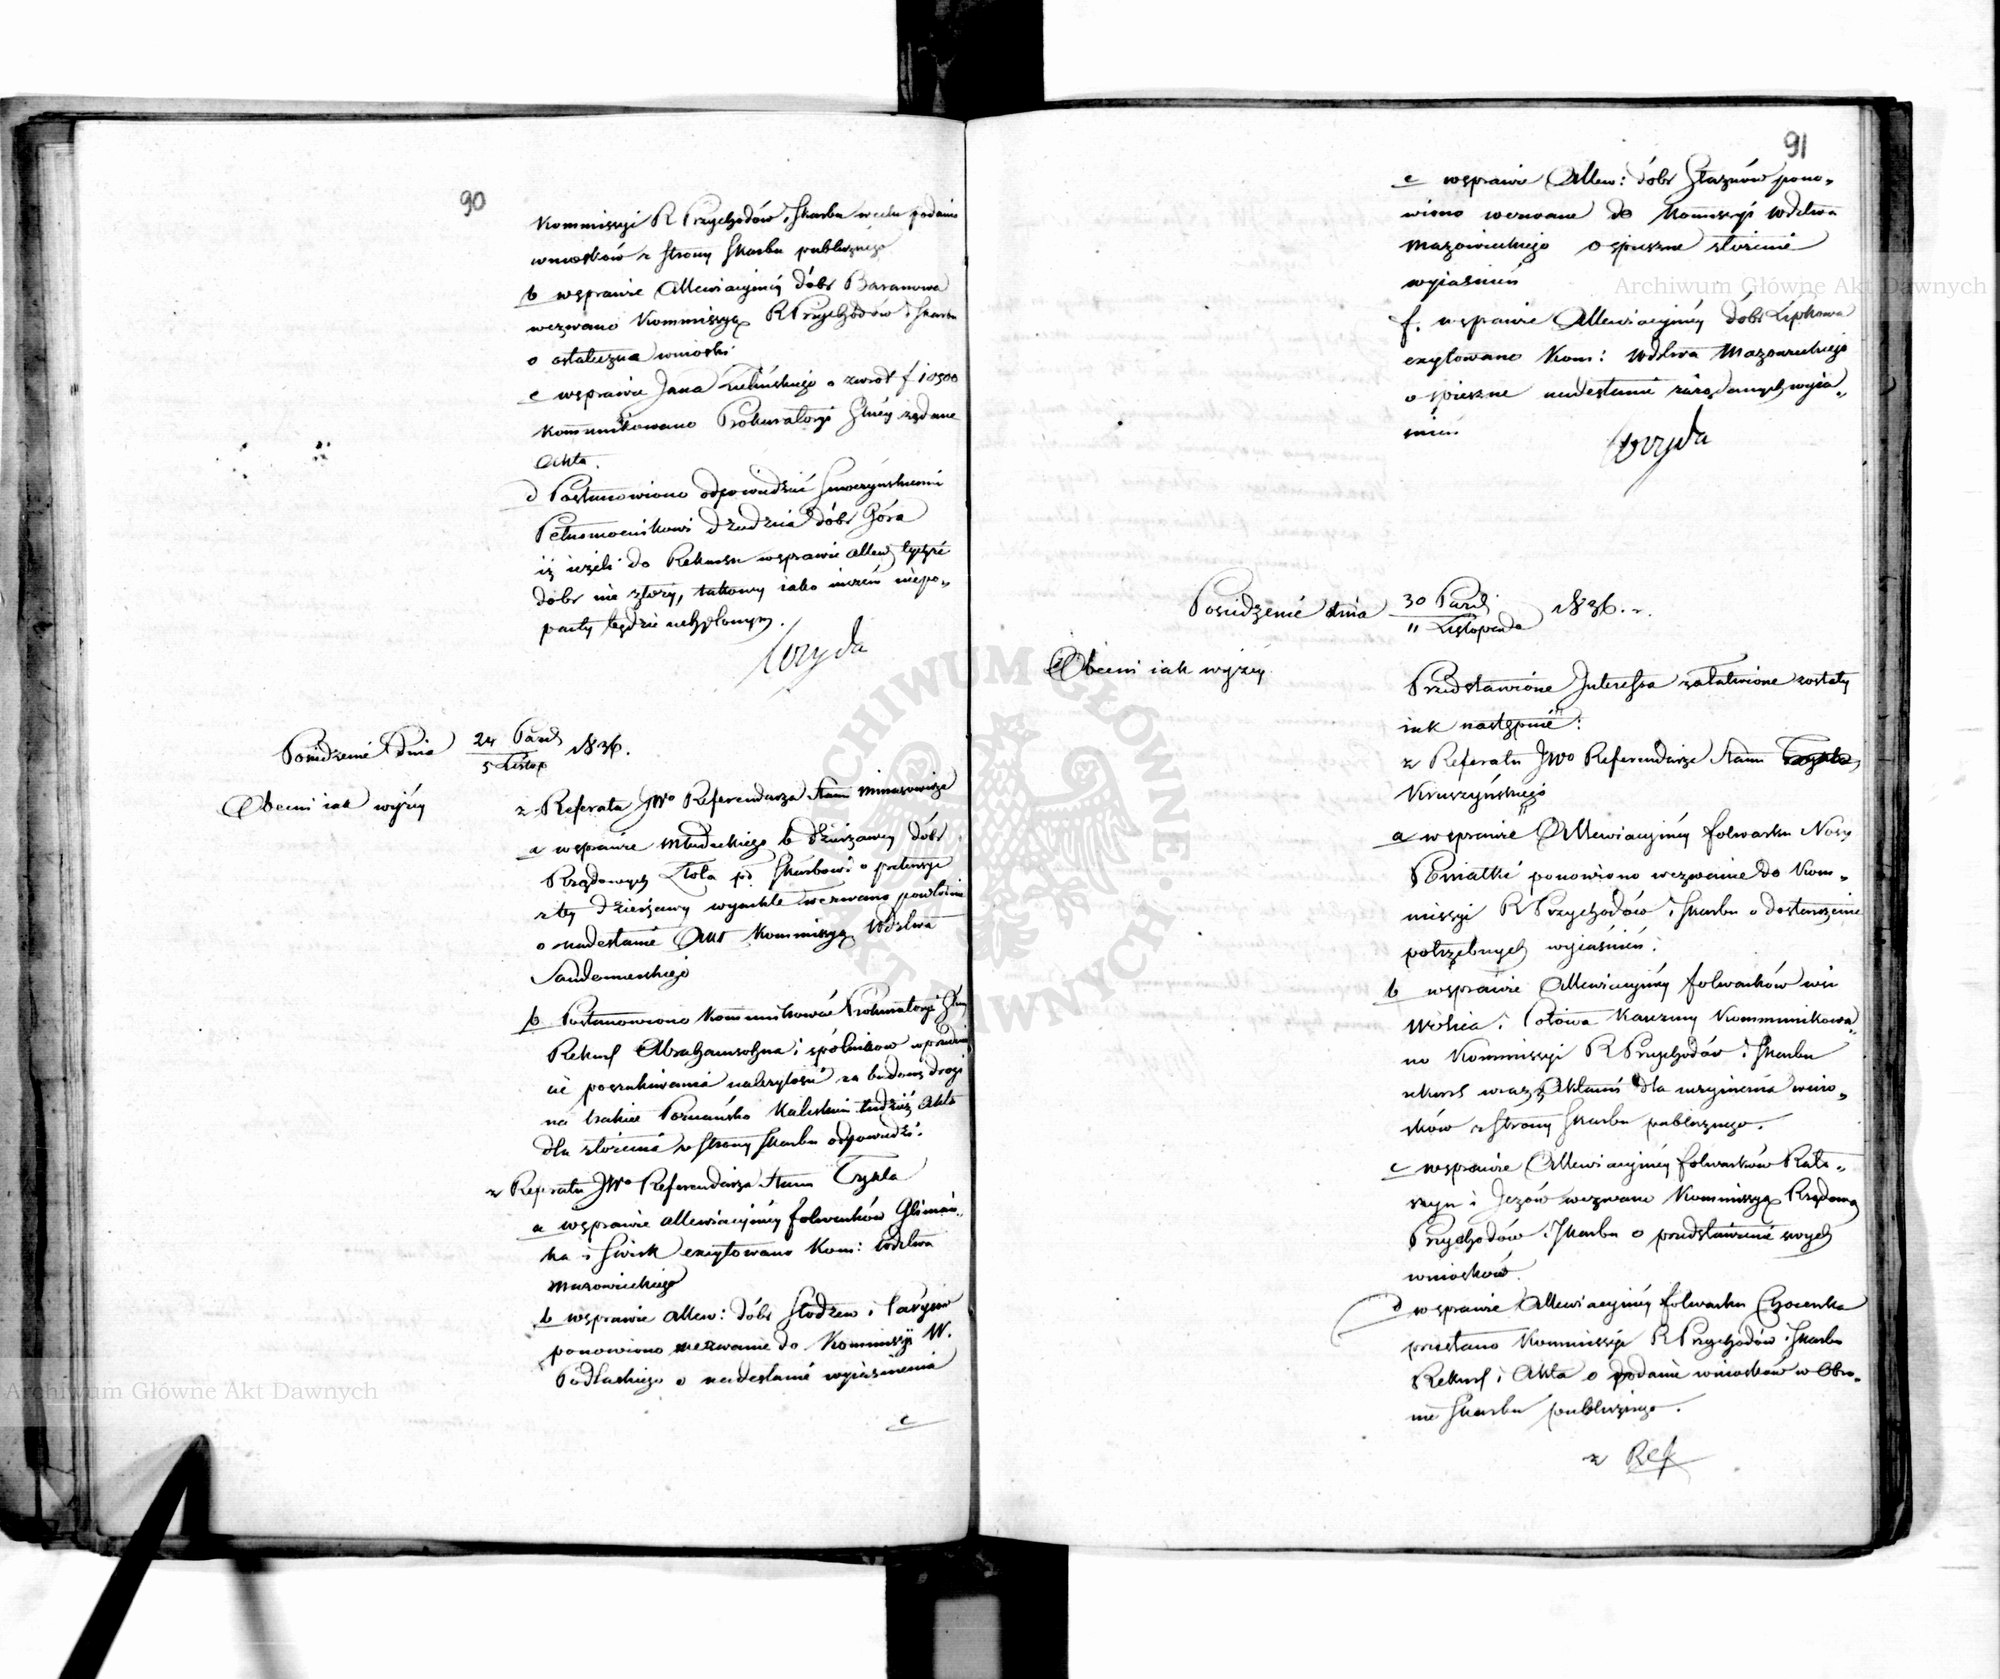 90
Kommissyi R Przychodów i Skarbu w celu podania
wniosków z strony Skarbu publicznego
b w sprawie Allewiacyjnéy dóbr Baranowa
wezwano Kommissyą R Przychodów i Skarbu
o ostateczne wnioski
c w sprawie Jana Zielińskiego o zwrot f 10500
kommunikowano Prokuratoryi Głnéy żądane
Akta.
d Postanowiono odpowiedzieć
Pełnomocnikowi dziedzica dóbr Góra
iż ieżeli do Rekursu w sprawie Allew: tychże
dóbr nie złoży, takowy iako niczém niepo-
party będzie uchylonym.
Posiedzenie dnia 24 Paźd / 5 Listop 1836.
Obecni iak wyżéy
z Referatu JWo Referendarza Stanu Minasowicza
a w sprawie Młudeckiego b dzierżawcy dóbr
Rządowych Złota pko Skarbowi o pretensye
z téy dzierżawy wynikłe wezwano powtórnie
o nadesłanie Akt Kommissyą Wdztwa
Sandomierskiego
b Postanowiono Kommunikować Prokuratoryi Głnéy
Rekurs Abrahamsohna i spólników w przedmio
cie poszukiwania należytości za budowę drogi
na trakcie Poznańsko Kaliskim tudzież Akta
dla złożenia z strony Skarbu odpowiedzi.
z Referatu JWo Referendarza Stanu Tzykla
a w sprawie allewiacyjnéy folwarków Glinian-
ka i Świerk excytowano Kom: Wdztwa
Mazowieckiego
b w sprawie allew: dóbr Stodzew i
ponowiono wezwanie do Kommissyi W.
Podlaskiego o nadesłanie wyiaśnienia
c
91
c w sprawie Allew: dóbr pono-
wiono wezwanie do Kommissyi Wdztwa
Mazowieckiego o spieszne złożenie
wyiaśnień
f. w sprawie Allewiacyjnéy dóbr Lipkowa
excytowano Kom: Wdztwa Mazowieckiego
o spieszne nadesłanie zażądanych wyia-
śnień
Posiedzenie dnia 30 Paźd / 11 Listopada 1836. r.
Obecni iak wyżéy.
Przedstawione Interessa załatwione zostały
iak następuie:
z Referatu JWo Referendarza Stanu
Kruszyńskiego
a w sprawie Allewiacyjnéy folwarku Nowy
Poniatki ponowiono wezwanie do Kom-
missyi R Przychodów i Skarbu o dostarczenie
potrzebnych wyiaśnień.
b w sprawie Allewiacyjnéy folwarków wsi
Wólica i Połowa Karczmy Kommunikowa-
no Kommissyi R Przychodów i Skarbu
rekurs wraz z Aktami dla uczynienia wnio-
sków z strony Skarbu publicznego.
c w sprawie Allewiacyjnéy folwarków Rato-
szyn i Jeżów wezwano Kommissyą Rządową
Przychodów i Skarbu o przedstawienie swych
wniosków.
d w sprawie Allewiacyjnéy folwarku Chocenka
przesłano Kommissyi R Przychodów i Skarbu
Rekurs i Akta o podanie wniosków w Obro-
nie Skarbu publicznego.
z Ref
Archiwum Główne Akt Dawnych
Archiwum Główne Akt Dawnych
ARCHIWUM GŁÓWNE AKT DAWNYCH